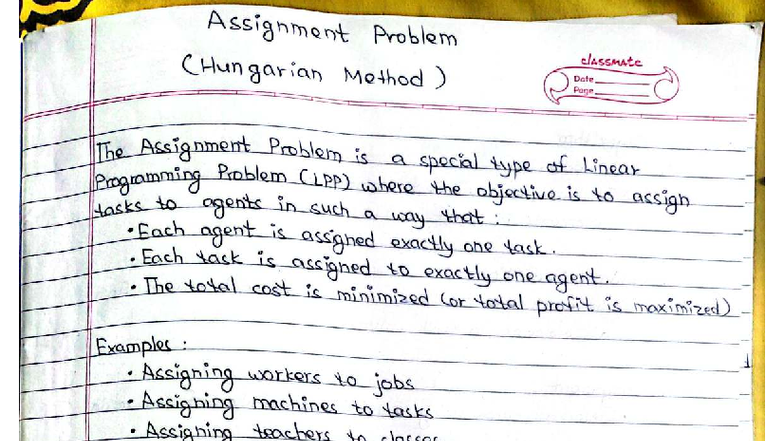 Assignment Problem
(Hungarian Method)
classmate
Date
Page
The Assignment Problem is a special type of Linear
Programming Problem (LPP) where the objective is to assign
tasks to agents in such a way that :
• Each agent is assigned exactly one task.
• Each task is assigned to exactly one agent.
• The total cost is minimized (or total profit is maximized)
Examples :
• Assigning workers to jobs
• Assigning machines to tasks
• Assigning teachers to classes